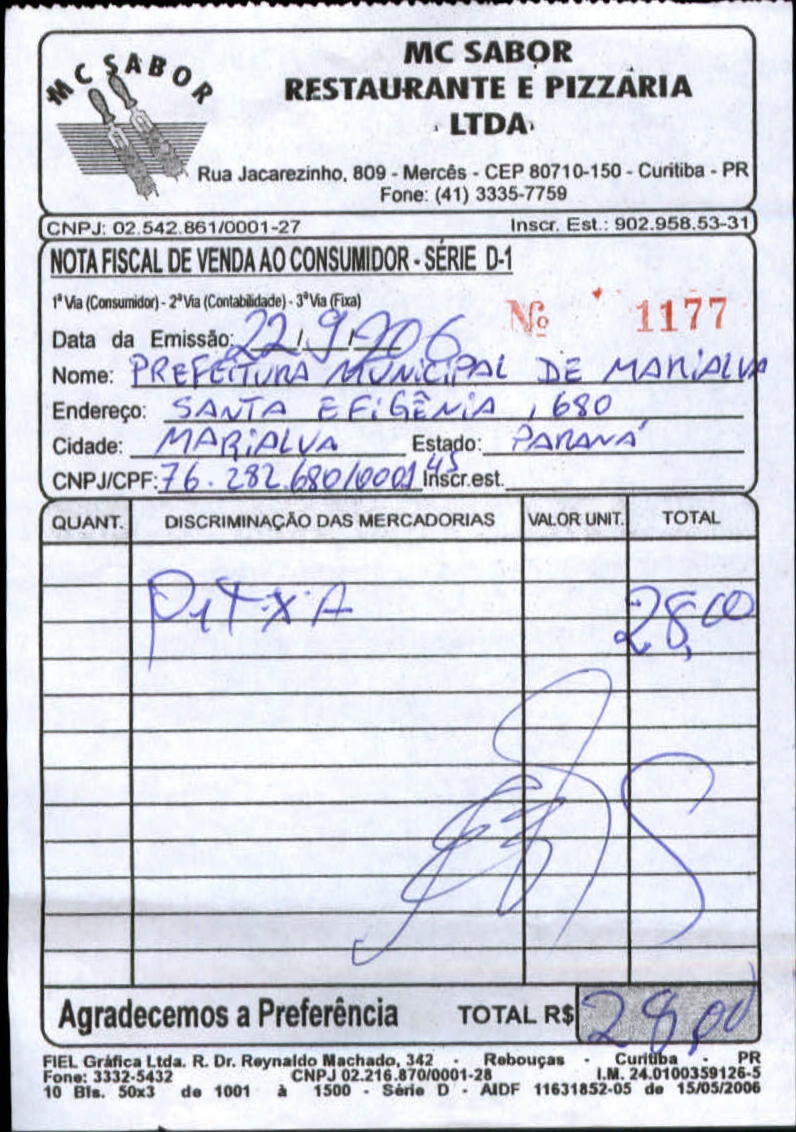 MC SABOR
MC SABOR
RESTAURANTE E PIZZARIA
LTDA
Rua Jacarezinho, 809 - Mercês - CEP 80710-150 - Curitiba - PR
Fone: (41) 3335-7759
CNPJ: 02.542.861/0001-27 Inscr. Est.: 902.958.53-31
NOTA FISCAL DE VENDA AO CONSUMIDOR - SÉRIE D-1
1ª Via (Consumidor) - 2ª Via (Contabilidade) - 3ª Via (Fixa)
Nº 1177
Data da Emissão: 22/9/206
Nome: PREFEITURA MUNICIPAL DE MARIALVA
Endereço: SANTA EFIGÊNIA, 680
Cidade: MARIALVA Estado: PARANÁ
CNPJ/CPF: 76.282.680/0001 45 Inscr.est.
QUANT. DISCRIMINAÇÃO DAS MERCADORIAS VALOR UNIT. TOTAL
PITXA 28,00
Agradecemos a Preferência TOTAL R$ 28,00
FIEL Gráfica Ltda. R. Dr. Reynaldo Machado, 342 - Rebouças - Curitiba - PR
Fone: 3332-5432 CNPJ 02.216.870/0001-28 I.M. 24.0100359126-5
10 Bls. 50x3 de 1001 à 1500 - Série D - AIDF 11631852-05 de 15/05/2006